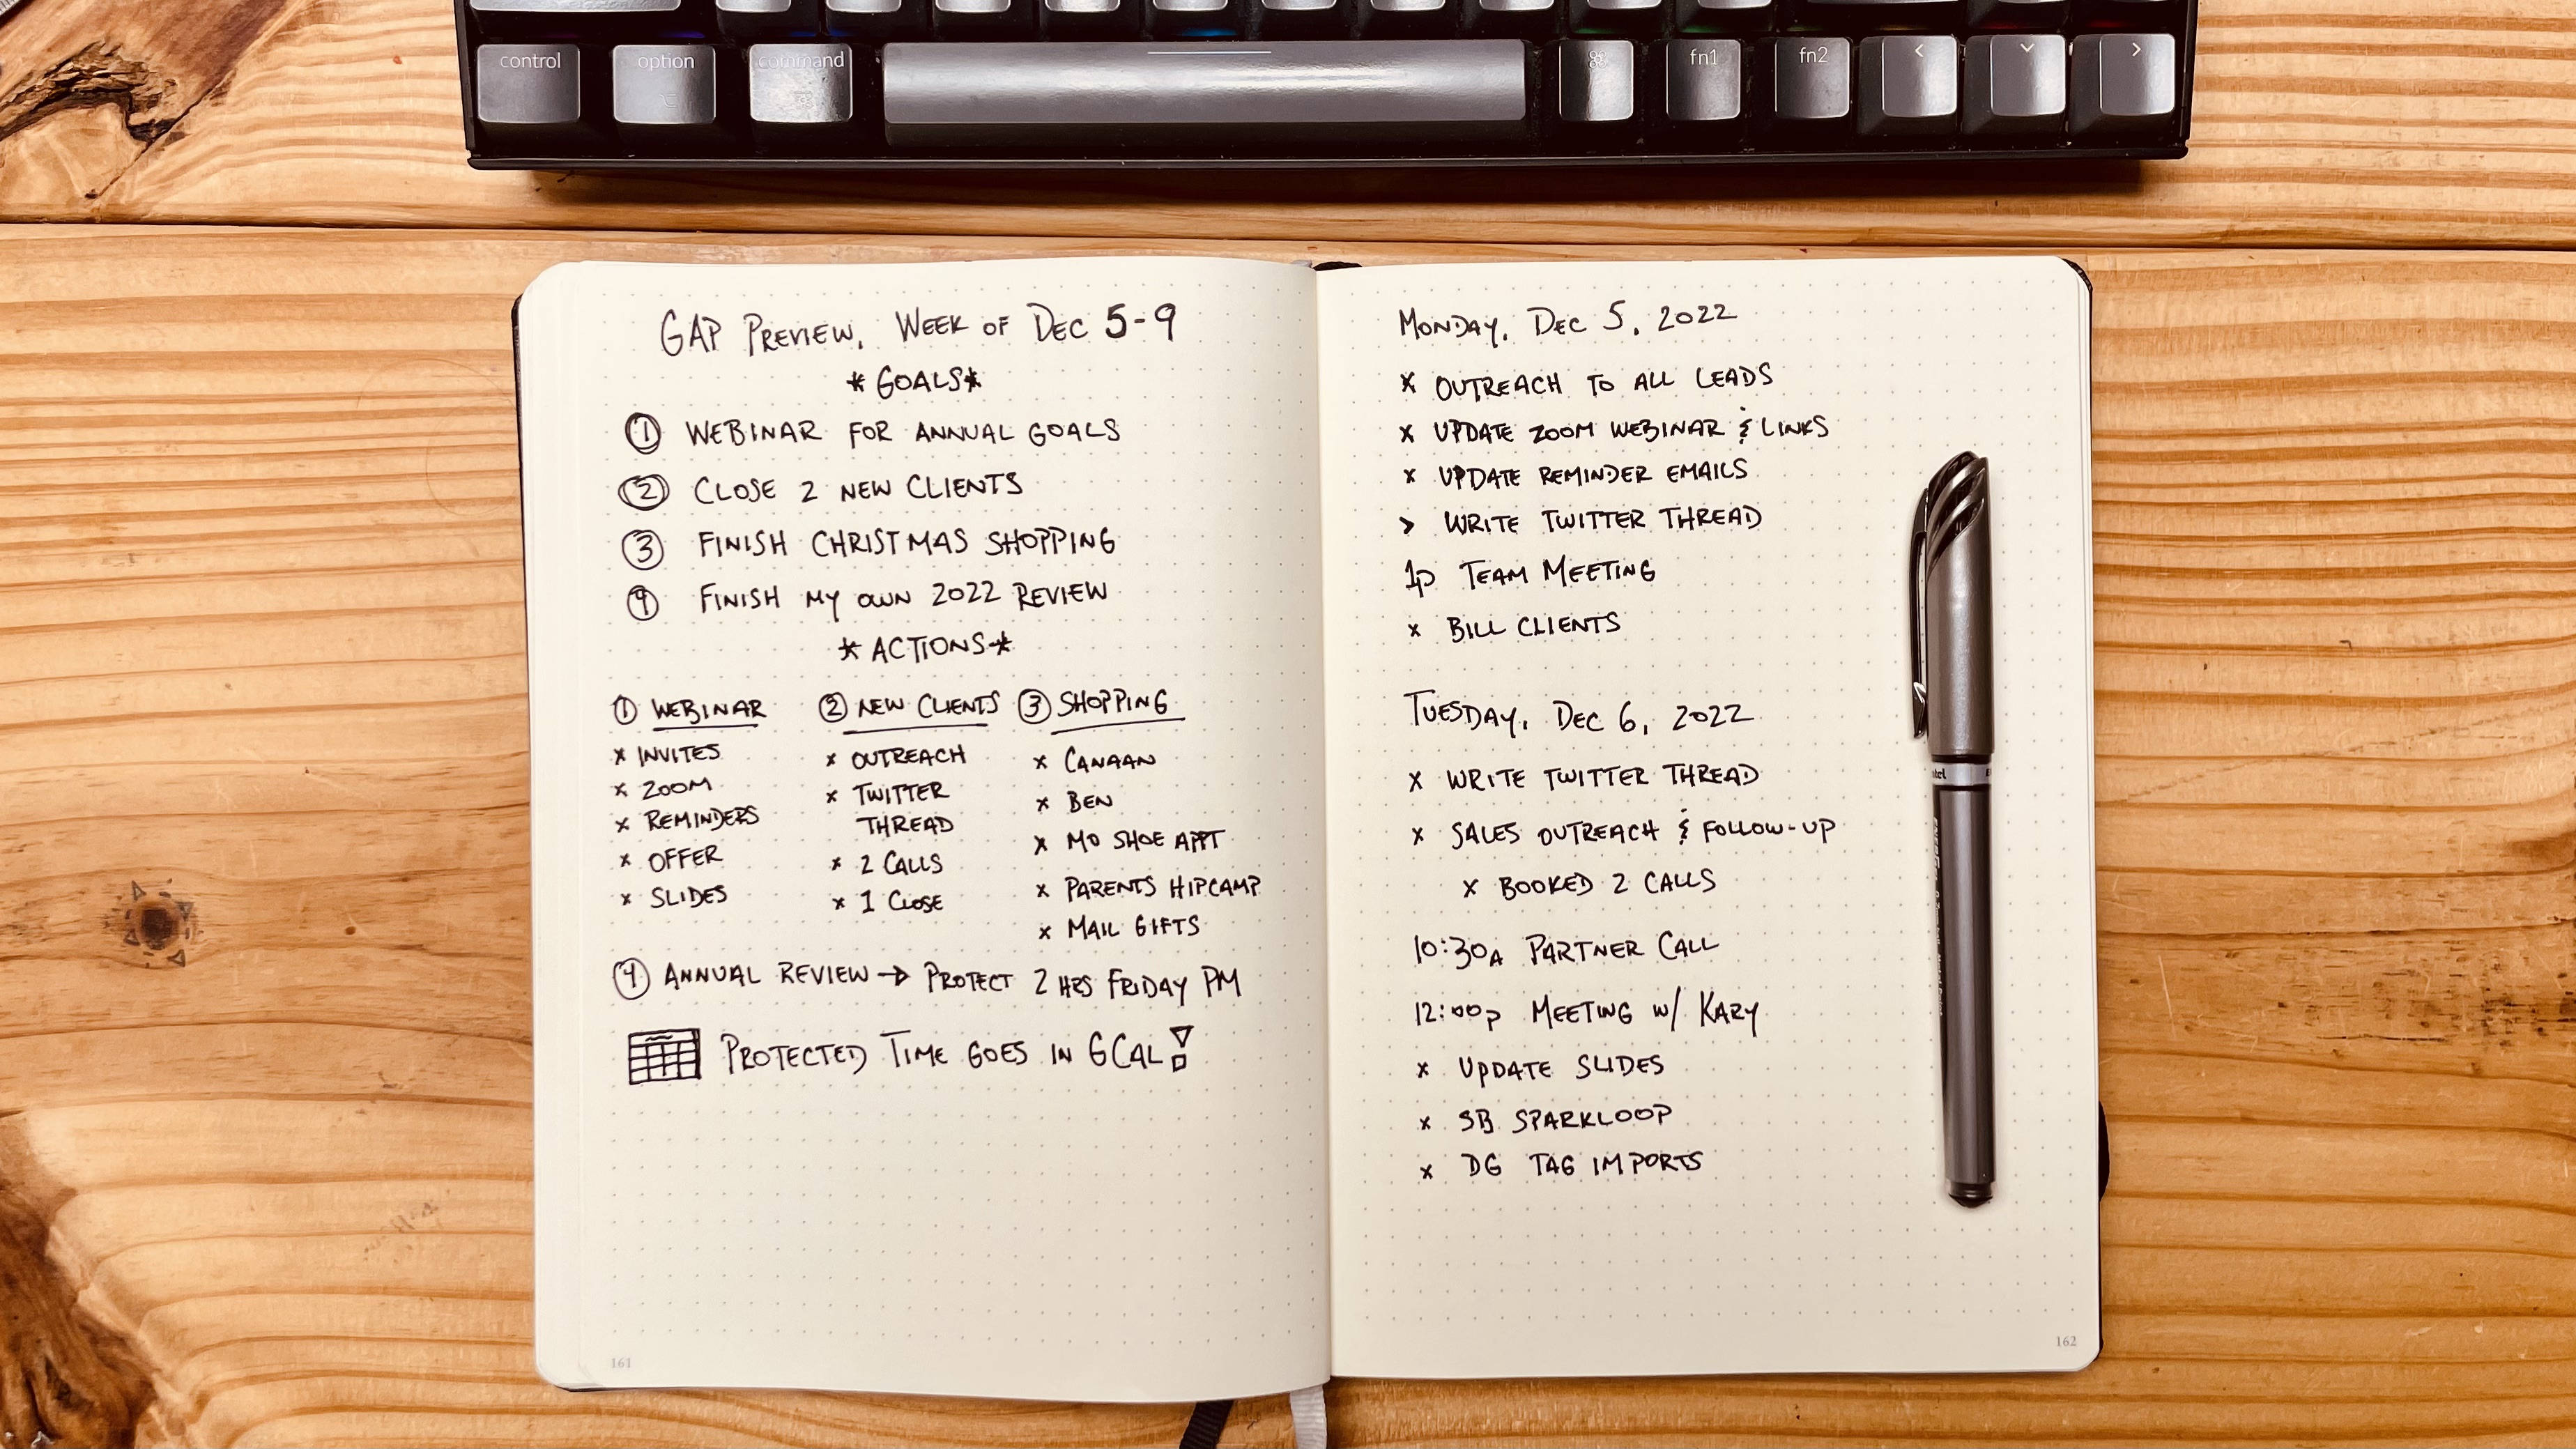 control option command fn1 fn2 < >
GAP PREVIEW, WEEK OF DEC 5-9
* GOALS *
① WEBINAR FOR ANNUAL GOALS
② CLOSE 2 NEW CLIENTS
③ FINISH CHRISTMAS SHOPPING
④ FINISH MY OWN 2022 REVIEW
* ACTIONS *
① WEBINAR
x INVITES
x ZOOM
x REMINDERS
x OFFER
x SLIDES
② NEW CLIENTS
x OUTREACH
x TWITTER
THREAD
x 2 CALLS
x 1 CLOSE
③ SHOPPING
x CANAAN
x BEN
x MO SHOE APPT
x PARENTS HIPCAMP
x MAIL GIFTS
④ ANNUAL REVIEW → PROTECT 2 HRS FRIDAY PM
PROTECTED TIME GOES IN GCAL!
161
MONDAY, DEC 5, 2022
x OUTREACH TO ALL LEADS
x UPDATE ZOOM WEBINAR & LINKS
x UPDATE REMINDER EMAILS
> WRITE TWITTER THREAD
1p TEAM MEETING
x BILL CLIENTS
TUESDAY, DEC 6, 2022
x WRITE TWITTER THREAD
x SALES OUTREACH & FOLLOW-UP
x BOOKED 2 CALLS
10:30A PARTNER CALL
12:00p MEETING W/ KARY
x UPDATE SLIDES
x SB SPARKLOOP
x DG TAG IMPORTS
162